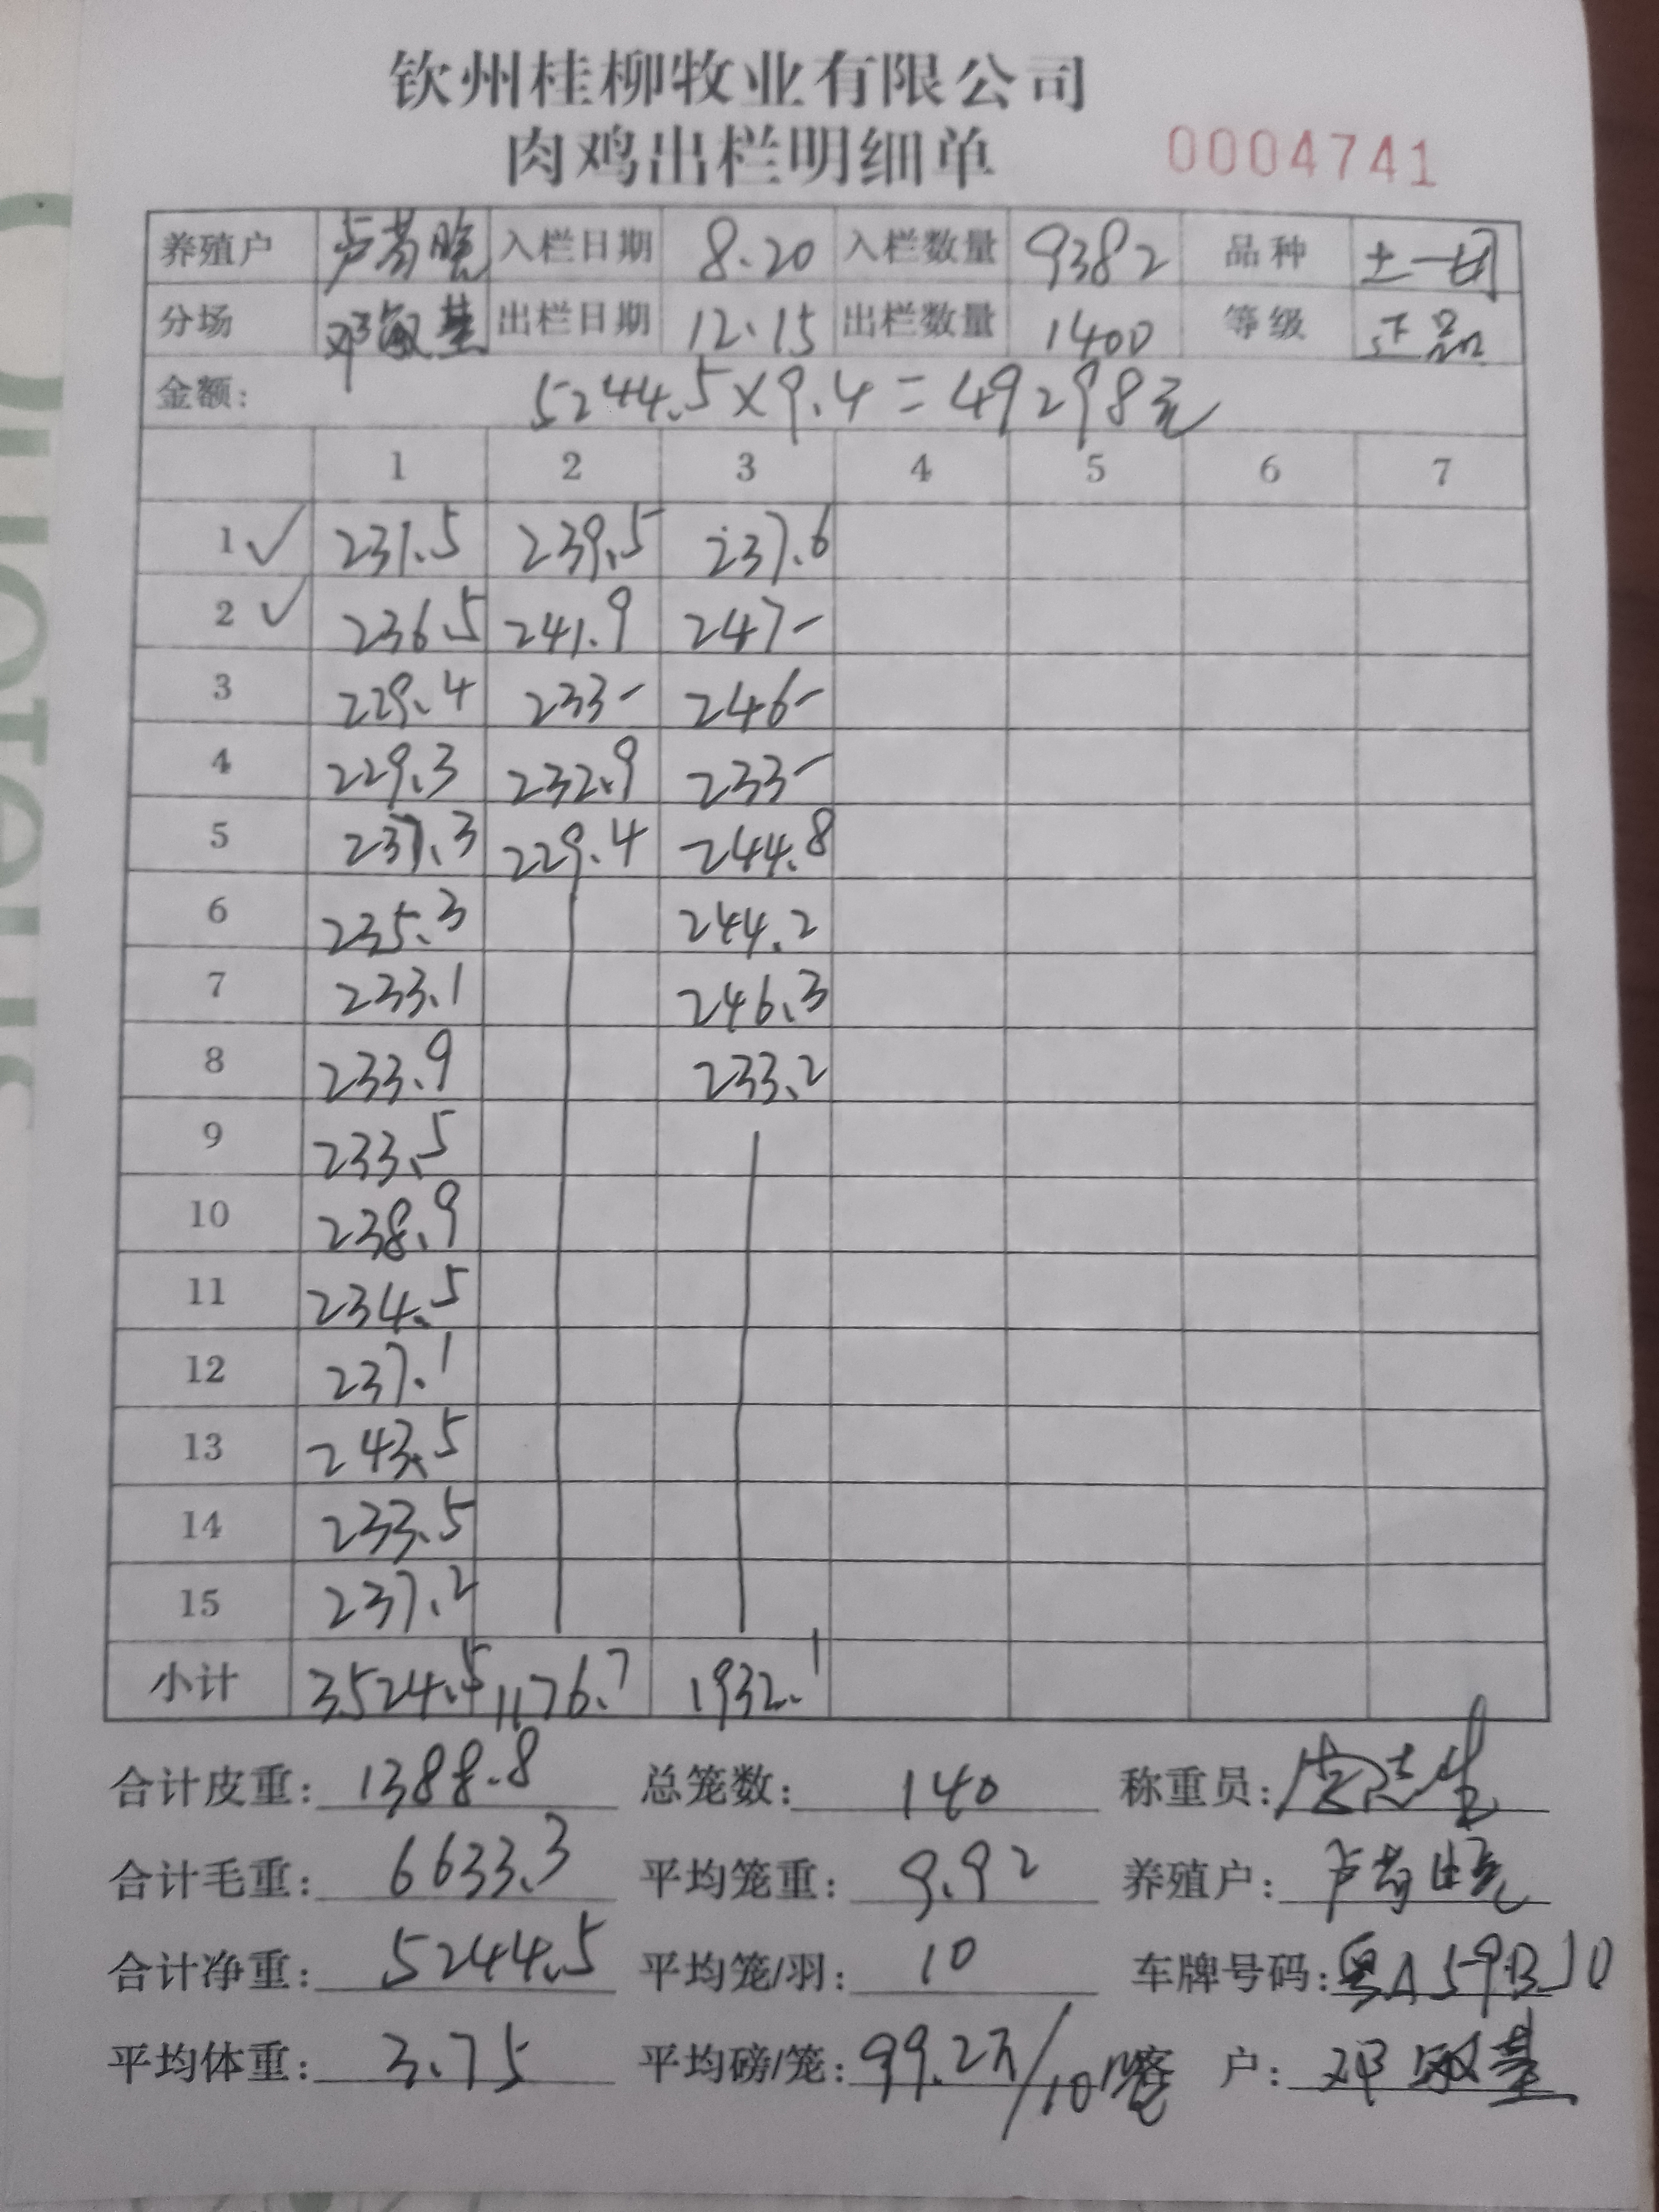 钦州桂柳牧业有限公司
肉鸡出栏明细单 0004741
养殖户 卢 入栏日期 8.20 入栏数量 9382 品种
分场 邓敏基 出栏日期 12.15 出栏数量 1400 等级 正品
金额: 5244.5×9.4=49298元
1 2 3 4 5 6 7
1✓ 231.5 239.5 237.6
2✓ 236.5 241.9 247-
3 229.4 233- 246-
4 229.3 232.9 233-
5 237.3 229.4 244.8
6 235.3 244.2
7 233.1 246.3
8 233.9 233.2
9 233.5
10 238.9
11 234.5
12 237.1
13 243.5
14 233.5
15 237.2
小计 3524.5 1176.7 1932.1
合计皮重: 1388.8 总笼数: 140 称重员:
合计毛重: 6633.3 平均笼重: 9.92 养殖户: 卢
合计净重: 5244.5 平均笼/羽: 10 车牌号码: 粤A59BJ0
平均体重: 3.75 平均磅/笼: 99.2斤/10 客 户: 邓敏基